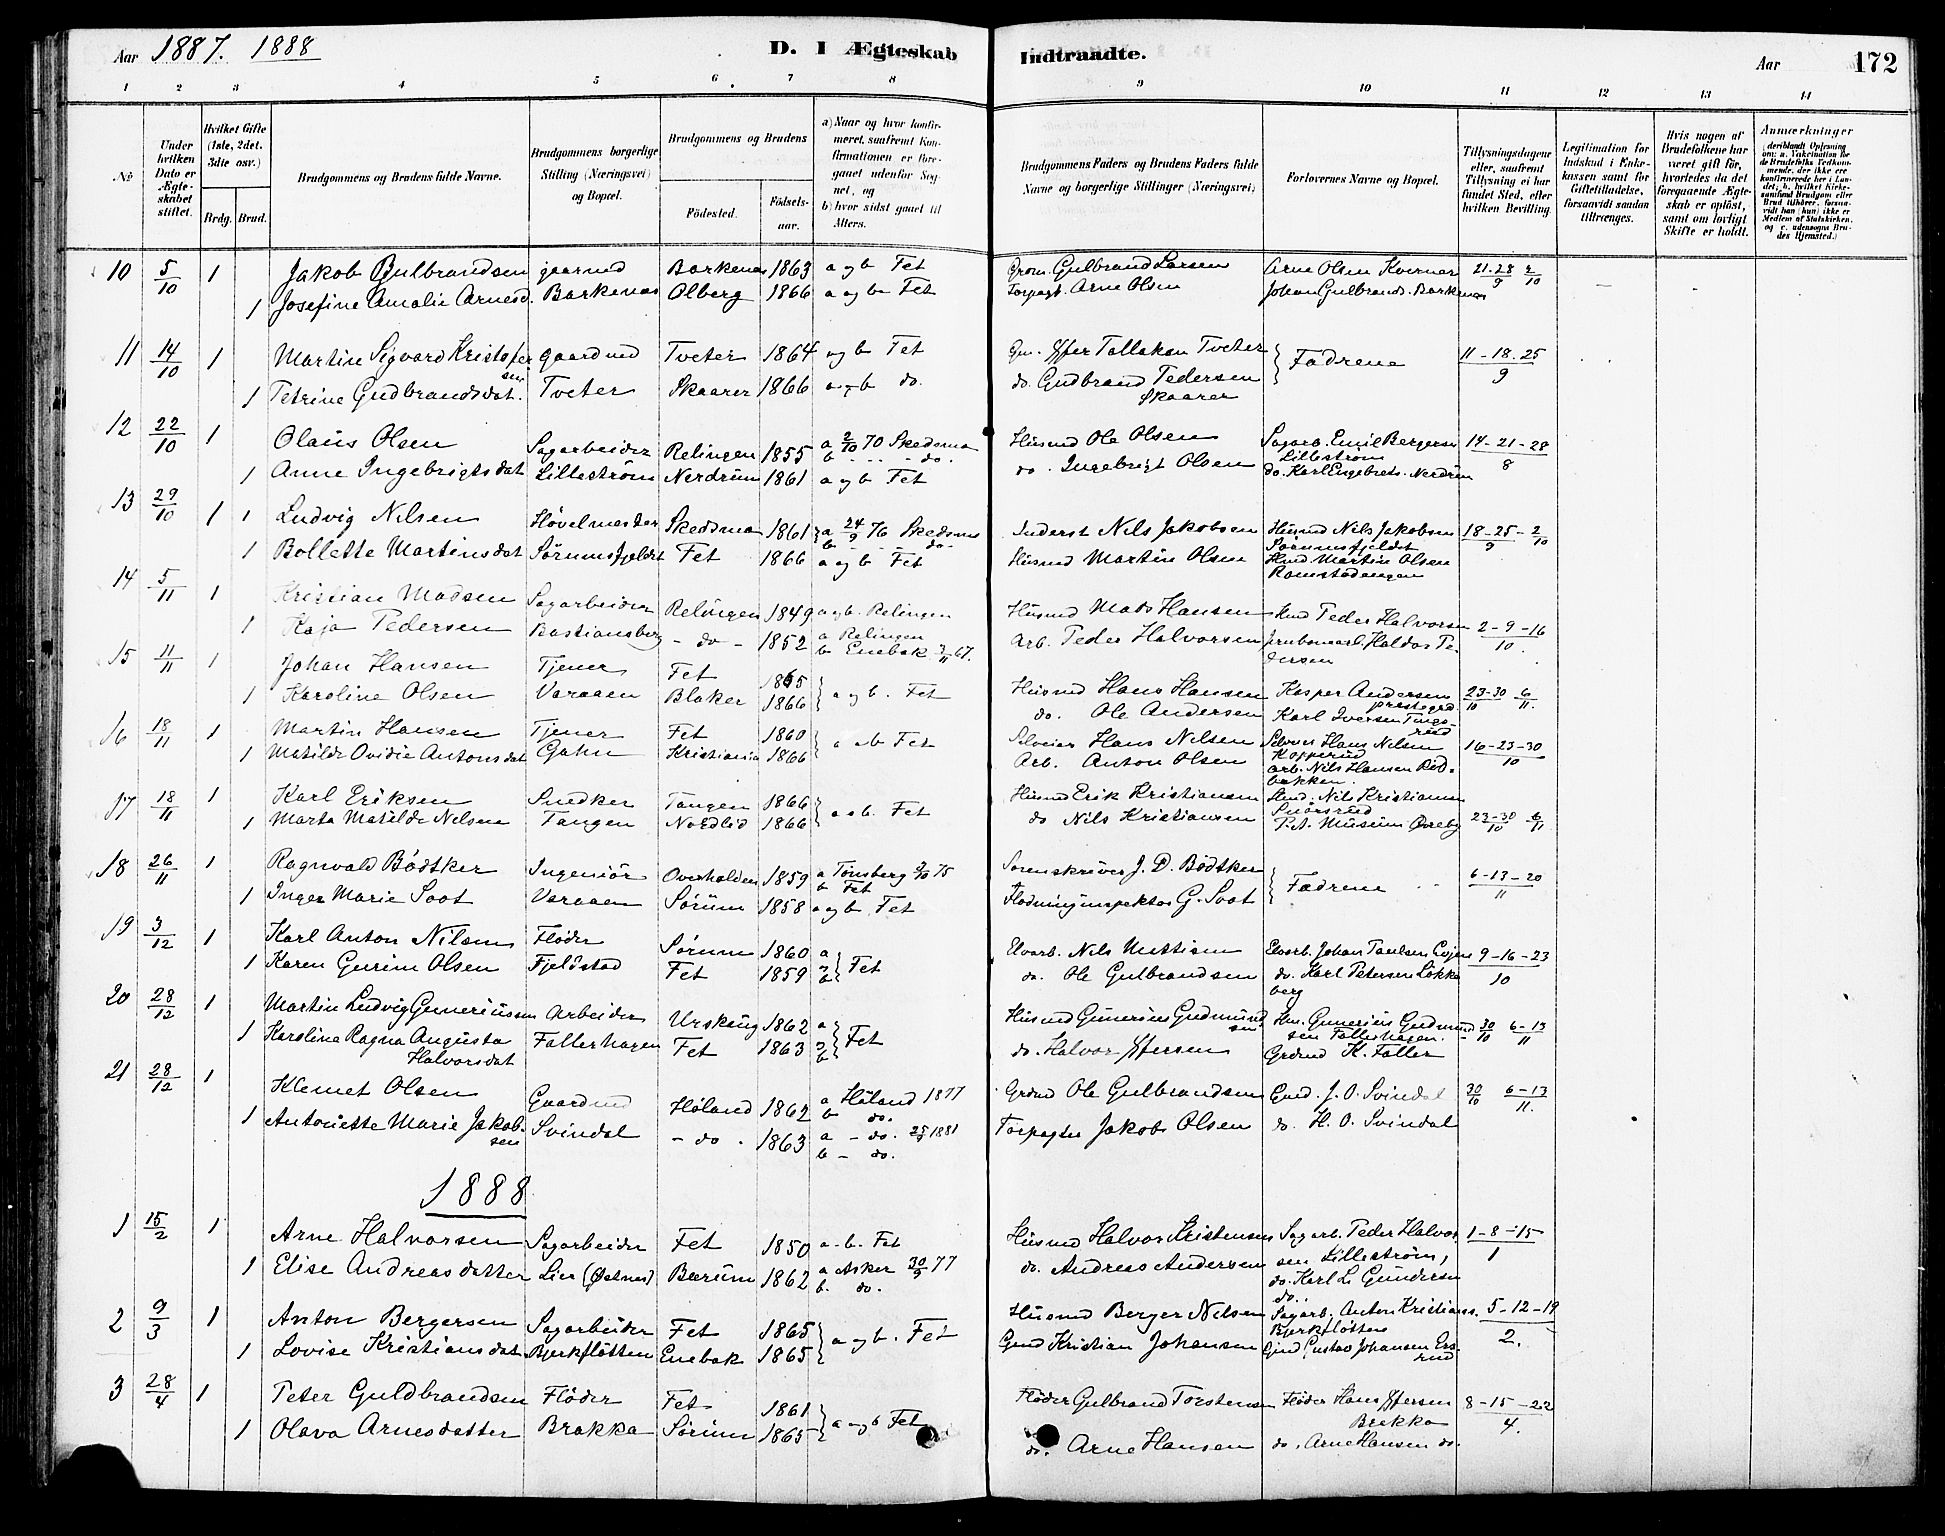 Aar 1887. 1888
D. I Ægteskab Indtraadte.
Aar 172
1 2 3 4 5 6 7 8 9 10 11 12 13 14
No
Under hvilken Dato er Ægteskabet stiftet.
Hvilket Gifte (1ste, 2det, 3die osv.)
Brdg. Brud.
Brudgommens og Brudens fulde Navne.
Brudgommens borgerlige Stilling (Næringsvei) og Bopæl.
Brudgommens og Brudens
Fødested. Fødselsaar.
a) Naar og hvor konfirmeret, saafremt Konfirmationen er foregaaet udenfor Sognet, og
b) hvor sidst gaaet til Alters.
Brudgommens Faders og Brudens Faders fulde Navne og borgerlige Stillinger (Næringsvei)
Forlovernes Navne og Bopæl.
Tillysningsdagene eller, saafremt Tillysning ei har fundet Sted, efter hvilken Bevilling.
Legitimation for Indskud i Enkekassen samt for Giftetilladelse, forsaavidt saadan tiltrænges.
Hvis nogen af Brudefolkene har været gift før, hvorledes da det foregaaende Ægteskab er opløst, samt om lovligt Skifte er holdt.
Anmærkninger
10 5/10 1 Jakob Gulbrandsen gaardmd Barkenes 1863 a og b Fet Grdm. Gulbrand Larsen Arne Olsen Kvernar 21-28/9 2/10
1 Josefine Amalie Arnesd. Barkenes Olberg 1866 a og b Fet Forpagt. Arne Olsen Johan Gulbrands. Barkenes
11 14/10 1 Martin Sigvard Kristofersen gaardmd Tveter 1864 a og b Fet Gm. Tollaksen Tveter Fædrene 11-18-25/9
1 Petrine Gudbrandsdat. Tveter Skaarer 1866 a og b do. do. Gudbrand Pedersen Skaarer
12 22/10 1 Olaus Olsen Sagarbeider Relingen 1855 a 2/10 70 Skedsmo b do. Husmd Ole Olsen Sagarb. Emil Bergersen Lillestrøm 14-21-28/8
1 Anne Ingebrigtsdat Lillestrøm Nerdrum 1861 a og b Fet do. Ingebrigt Olsen do. Karl Engebrets. Nerdrum
13 29/10 1 1 Ludvig Nilsen Høvelmester Skedsmo 1861 a 24/9 76 Skedsmo b do. Inderst Nils Jakobsen Husmd Nils Jakobsen Sørumsfjeldet 18-25/9 - 2/10
1 Bollette Martinsdat Sørumsfjeldet Fet 1866 a og b Fet Husmd Martin Olsen Husmd Martin Olsen Ramstadengen
14 5/11 1 Kristian Madsen Sagarbeider Relingen 1849 a og b. Relingen Husmd Mads Hansen Hmd Peder Halvorsen 2-9-16/10
1 Kaja Pedersen Bastiansberg - do - 1852 a Relingen b Enebak 67. Arb. Peder Halvorsen Jernbanearb. Haldor Pedersen
15 11/11 1 Johan Hansen Tjener Fet 1865 a og b. Fet Husmd Hans Hansen Kasper Andersen prestegrd 23-30/10 6/11
1 Karoline Olsen Varaaen Blaker 1866 do. Ole Andersen Karl Iversen
16 18/11 1 Martin Hansen Tjener Fet 1860 a og b Fet Selveier Hans Nilsen Selveier Hans Nilsen Kopperud 16-23-30/10
1 Matilde Ovidie Antonsdat Gahn Kristiania 1866 Arb. Anton Olsen arb. Nils Hansen Rødbakken.
17 18/11 1 Karl Eriksen Snedker Tangen 1866 a og b. Fet Husmd Erik Kristiansen Hmd. Nils Kristiansen 23-30/10 6/11
1 Marta Matilde Nilsen Tangen Nordlid 1866 do Nils Kristiansen P. A. Museum Øreby
18 26/11 1 Ragnvald Bødtker Ingeniør Overhalden 1859 a Tønsberg 75 b Fet Sorenskriver J. D. Bødtker Fædrene 6-13-20/11
1 Inger Marie Soot Varaaen Sørum 1858 a og b Fet Flødninginspektør G. Soot
19 3/12 1 Karl Anton Nilsen Fløder Sørum 1860 a og b Fet Elvarb. Nils Mattisen Elvarb. Johan Paulsen 9-16-23/10
1 Karen Gurine Olsen Fjeldstad Fet 1859 do. Ole Gulbrandsen do. Karl Petersen Løkkeberg
20 28/12 1 Martin Ludvig Gunneriussen Arbeider Urskoug 1862 a og b Fet Husmd Gunerius Gudmundsen Hm. Gunerius Gudmundsen Fallerhagen. 30/10 6-13/11
1 Karoline Ragna Augusta Halvorsdat Fallerhagen Fet 1863 do. Halvor Grdmd K. Faller
21 28/12 1 Klemet Olsen Gaardmd Høland 1862 a Høland 1877 b do. Grdmd Ole Gulbrandsen Gmd. J. O. Svindal 30/10 6-13/11.
1 Antoniette Marie Jakobsen Svindal - do. 1863 a - do. 1881 b - do. Forpagter Jakob Olsen do. H. O. Svindal
1888
1 15/2 1 Arne Halvorsen Sagarbeider Fet 1850 a. b. Fet Husmd Halvor Kristensen Sagarb. Peder Halvorsen Lillestrøm, 1-8-15/1
1 Elise Andreasdatter Lier (Østnes) Bærum 1862 a Asker 30/9 77 b. do. do. Andreas Andersen do. Karl L. Gundersen do.
2 9/3 1 Anton Bergersen Sagarbeider Fet 1865 a og b. Fet Husmd Berger Nilsen Sagarb. Anton Kristians. Bjerkfløtten 5-12-19/2.
1 Lovise Kristiansdat. Bjerkfløtten Enebak 1865 Gmd Kristian Johansen Gmd Gustav Johansen
3 28/4 1 Peter Guldbrandsen Fløder Fet 1861 a og b Fet Fløder Gulbrand Torstensen Fløder Hans Brekka 8-15-22/4.
1 Olava Arnesdatter Brakka Sørum 1865 do. Arne Hansen do. Arne Hansen do.